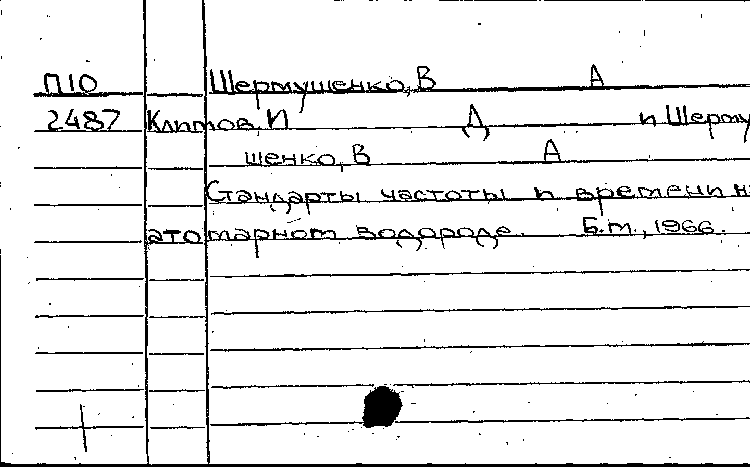 П10 Шермушенко, В А
2487 Климов, И Д и Шерму
шенко, В А
Стандарты частоты и времени н
атомарном водороде. Б.м., 1966.